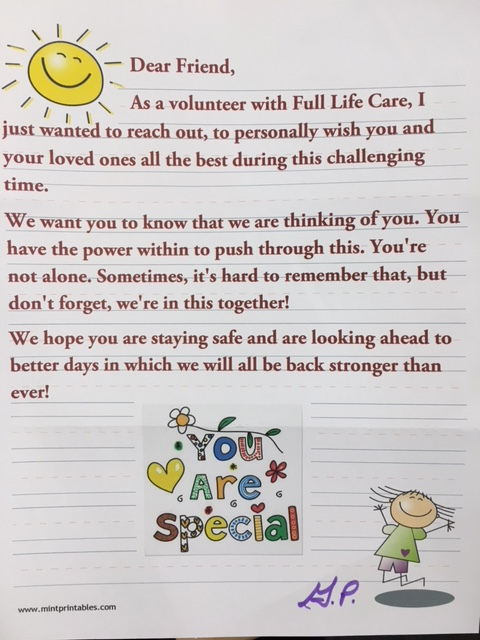 Dear Friend,
As a volunteer with Full Life Care, I
just wanted to reach out, to personally wish you and
your loved ones all the best during this challenging
time.
We want you to know that we are thinking of you. You
have the power within to push through this. You're
not alone. Sometimes, it's hard to remember that, but
don't forget, we're in this together!
We hope you are staying safe and are looking ahead to
better days in which we will all be back stronger than
ever!
You
Are
Special
G.P.
www.mintprintables.com